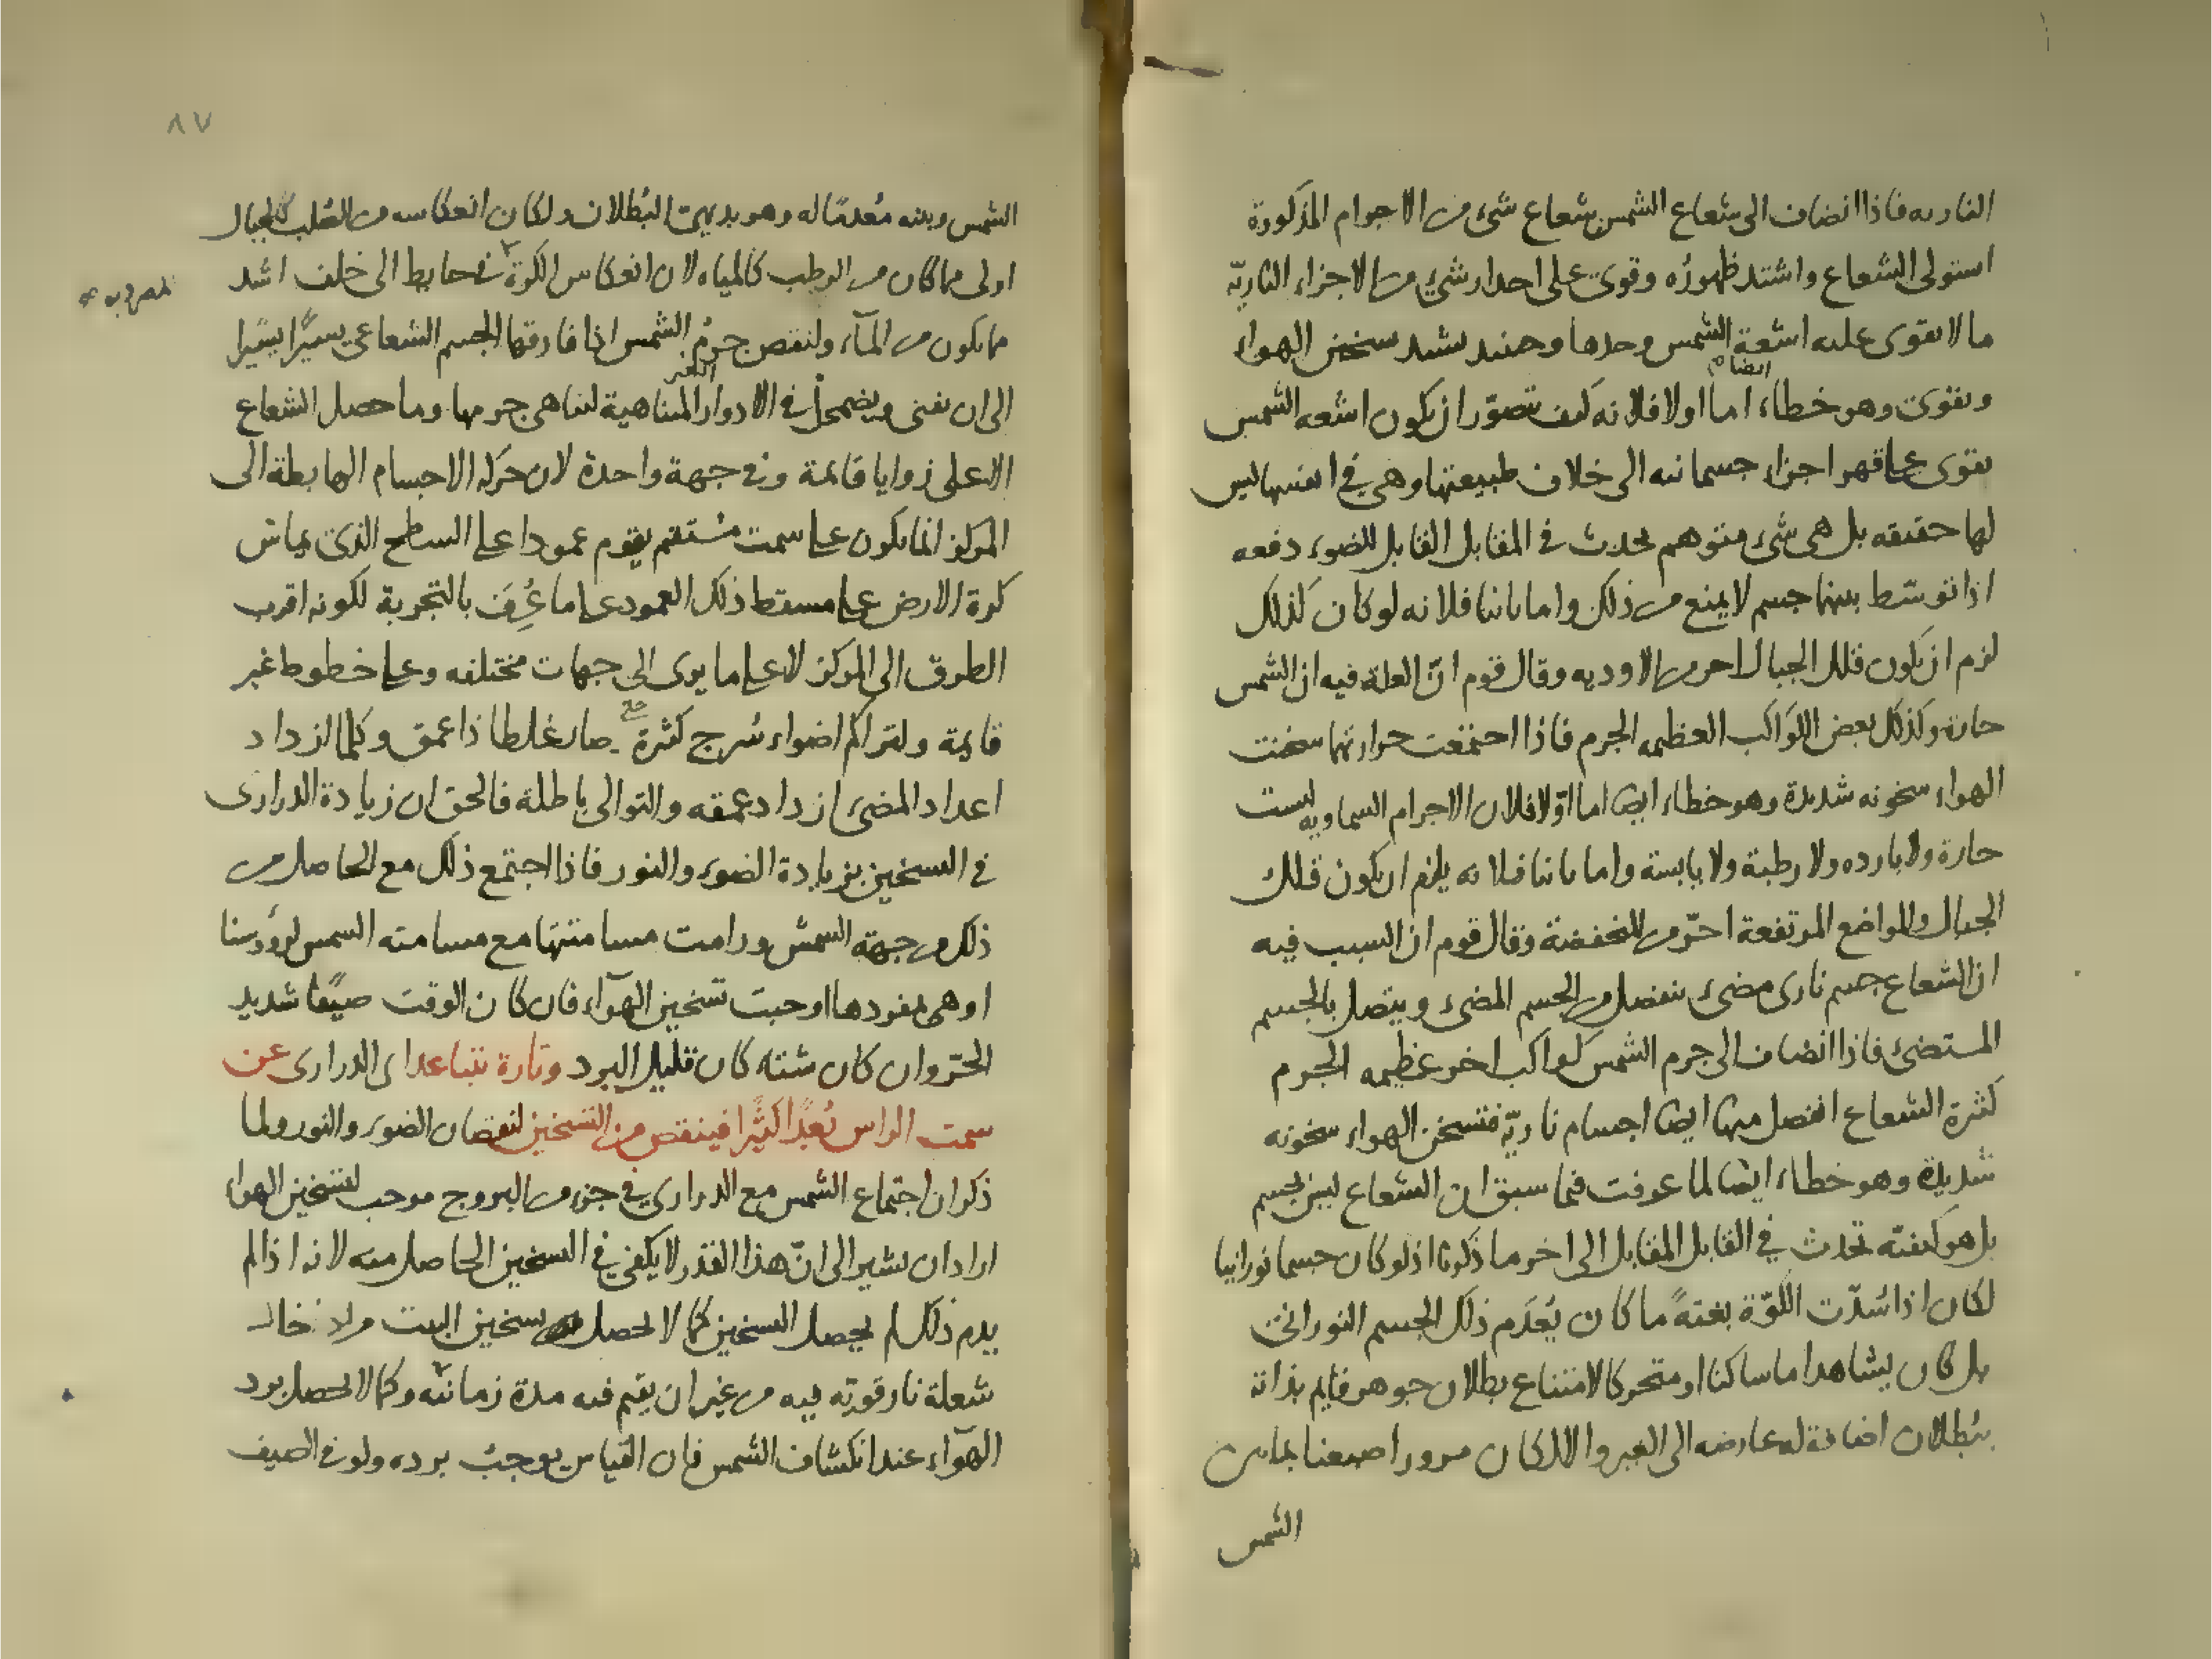 الناريه فاذا انضاف الى شعاع الشمس شعاع شئ من الاجرام المذكورة
استولى الشعاع واشتد ظهوره وقوى على احدار شئ من الاجزاء الناريّة
ما لا يقوى عليه اشعة الشمس وحدها وحينئذ يشتد سخين الهواء
ويقوى وهو خطاء ايضا اما اولا فلانه كيف يتصوّر ان يكون اشعه الشمس
يقوى على قهر اجزاء جسمانيه الى خلاف طبيعتها وهي في انفسها ليس
لها حقيقه بل هي شئ متوهم يحدث في المقابل القابل للضوء دفعه
اذا توسّط بينهما جسم لا يمنع من ذلك واما ثانيا فلانه لو كان كذلك
لزم ان يكون قلل الجبال احر من الاوديه وقال قوم انّ العلة فيه ان الشمس
حارة وكذلك بعض الكواكب العظيمه الجرم فاذا اجتمعت حرارتهما سخنت
الهواء سخونه شديدة وهو خطاء ايضا اما اوّلا فلان الاجرام السماويه ليست
حارة ولا بارده ولا رطبة ولا يابسة واما ثانيا فلانه يلزم ان يكون قلل
الجبال والمواضع المرتفعة احرّ من المنخفضة وقال قوم ان السبب فيه
ان الشعاع جسم نارى مضئ ينفصل من الجسم المضئ ويتصل بالجسم
المستضئ فاذا انضاف الى جرم الشمس كواكب اخر عظيمه الجرم
كثرة الشعاع انفصل منها ايضا اجسام ناريّة فتسخن الهواء سخونه
شديدة وهو خطاء ايضا لما عرفت فيما سبق ان الشعاع ليس بجسم
بل هو كيفيّه تحدث في القابل المقابل الى اخر ما ذكرنا اذ لو كان جسما نورانيا
لكان اذا سُدّت الكوّة بغتةً ما كان يُعدَم ذلك الجسم النورانى
بل كان يشاهد اما ساكنا او متحركا لامتناع بطلان جوهر قايم بذاته
ببُطلان اضافة له عارضه الى الغير والا لكان مرور اصبعنا بما بين
الشمس
٨٧
الشمس وبينه مُعدمًا له وهو بديهى البُطلان ولكان انعكاسه من الصُلب كالجبال
اولى مما كان من الرطب كالمياه لان انعكاس الكرة من حايط الى خلف اشد
المضروبه
مما يكون من المآء ولنقص جرمُ الشمس اذا فارقها الجسم الشعاعى يسيرًا يسيرًا
الى ان يفنى ويضمحل في الادوار الغير المتناهية لتناهى جرمها وما حصل الشعاع
الا على زوايا قائمة وفى جهة واحدة لان حركة الاجسام الهابطة الى
المركز انما يكون على سمت مستقيم يقوم عمودا على السطح الذى يماس
كرة الارض على مسقط ذلك العمود على ما عُرِفَ بالتجربة لكونه اقرب
الطرق الى المركز لا على ما يرى الى جهات مختلفه وعلى خطوط غير
قائمة ولتراكم اضواء سُرج كثرة صار غلطا ذا عمق وكلما ازداد
اعداد المضئ ازداد عمقه والتوالى باطلة فالحق ان زيادة الدرارى
في السخين بزيادة الضوء والنور فاذا اجتمع ذلك مع الحاصل من
ذلك من جهة الشمس ودامت مسامتتها مع مسامته الشمس لرؤسنا
او هى بمفردها اوجبت تسخين الهوآء فان كان الوقت صيفا شديد
الحرّ وان كان شتاء كان قليل البرد وتارة تتباعد اى الدرارى عن
سمت الراس بُعدًا كثيرًا فينقص من التسخين لنقصان الضوء والنور ولما
ذكر ان اجتماع الشمس مع الدرارى في جزء من البروج موجب لتسخين الهواء
اراد ان يشير الى انّ هذا القدر لا يكفى في السخين الحاصل منه لانه اذا لم
يدم ذلك لم يحصل السخين كما لا يحصل سخين البيت من ادخال
شعلة نار قويّه فيه من غير ان يقيم فيه مدة زمانيّه وكما لا يحصل برد
الهوآء عند انكشاف الشمس فان القياس يوجبُ برده ولو فى الصيف